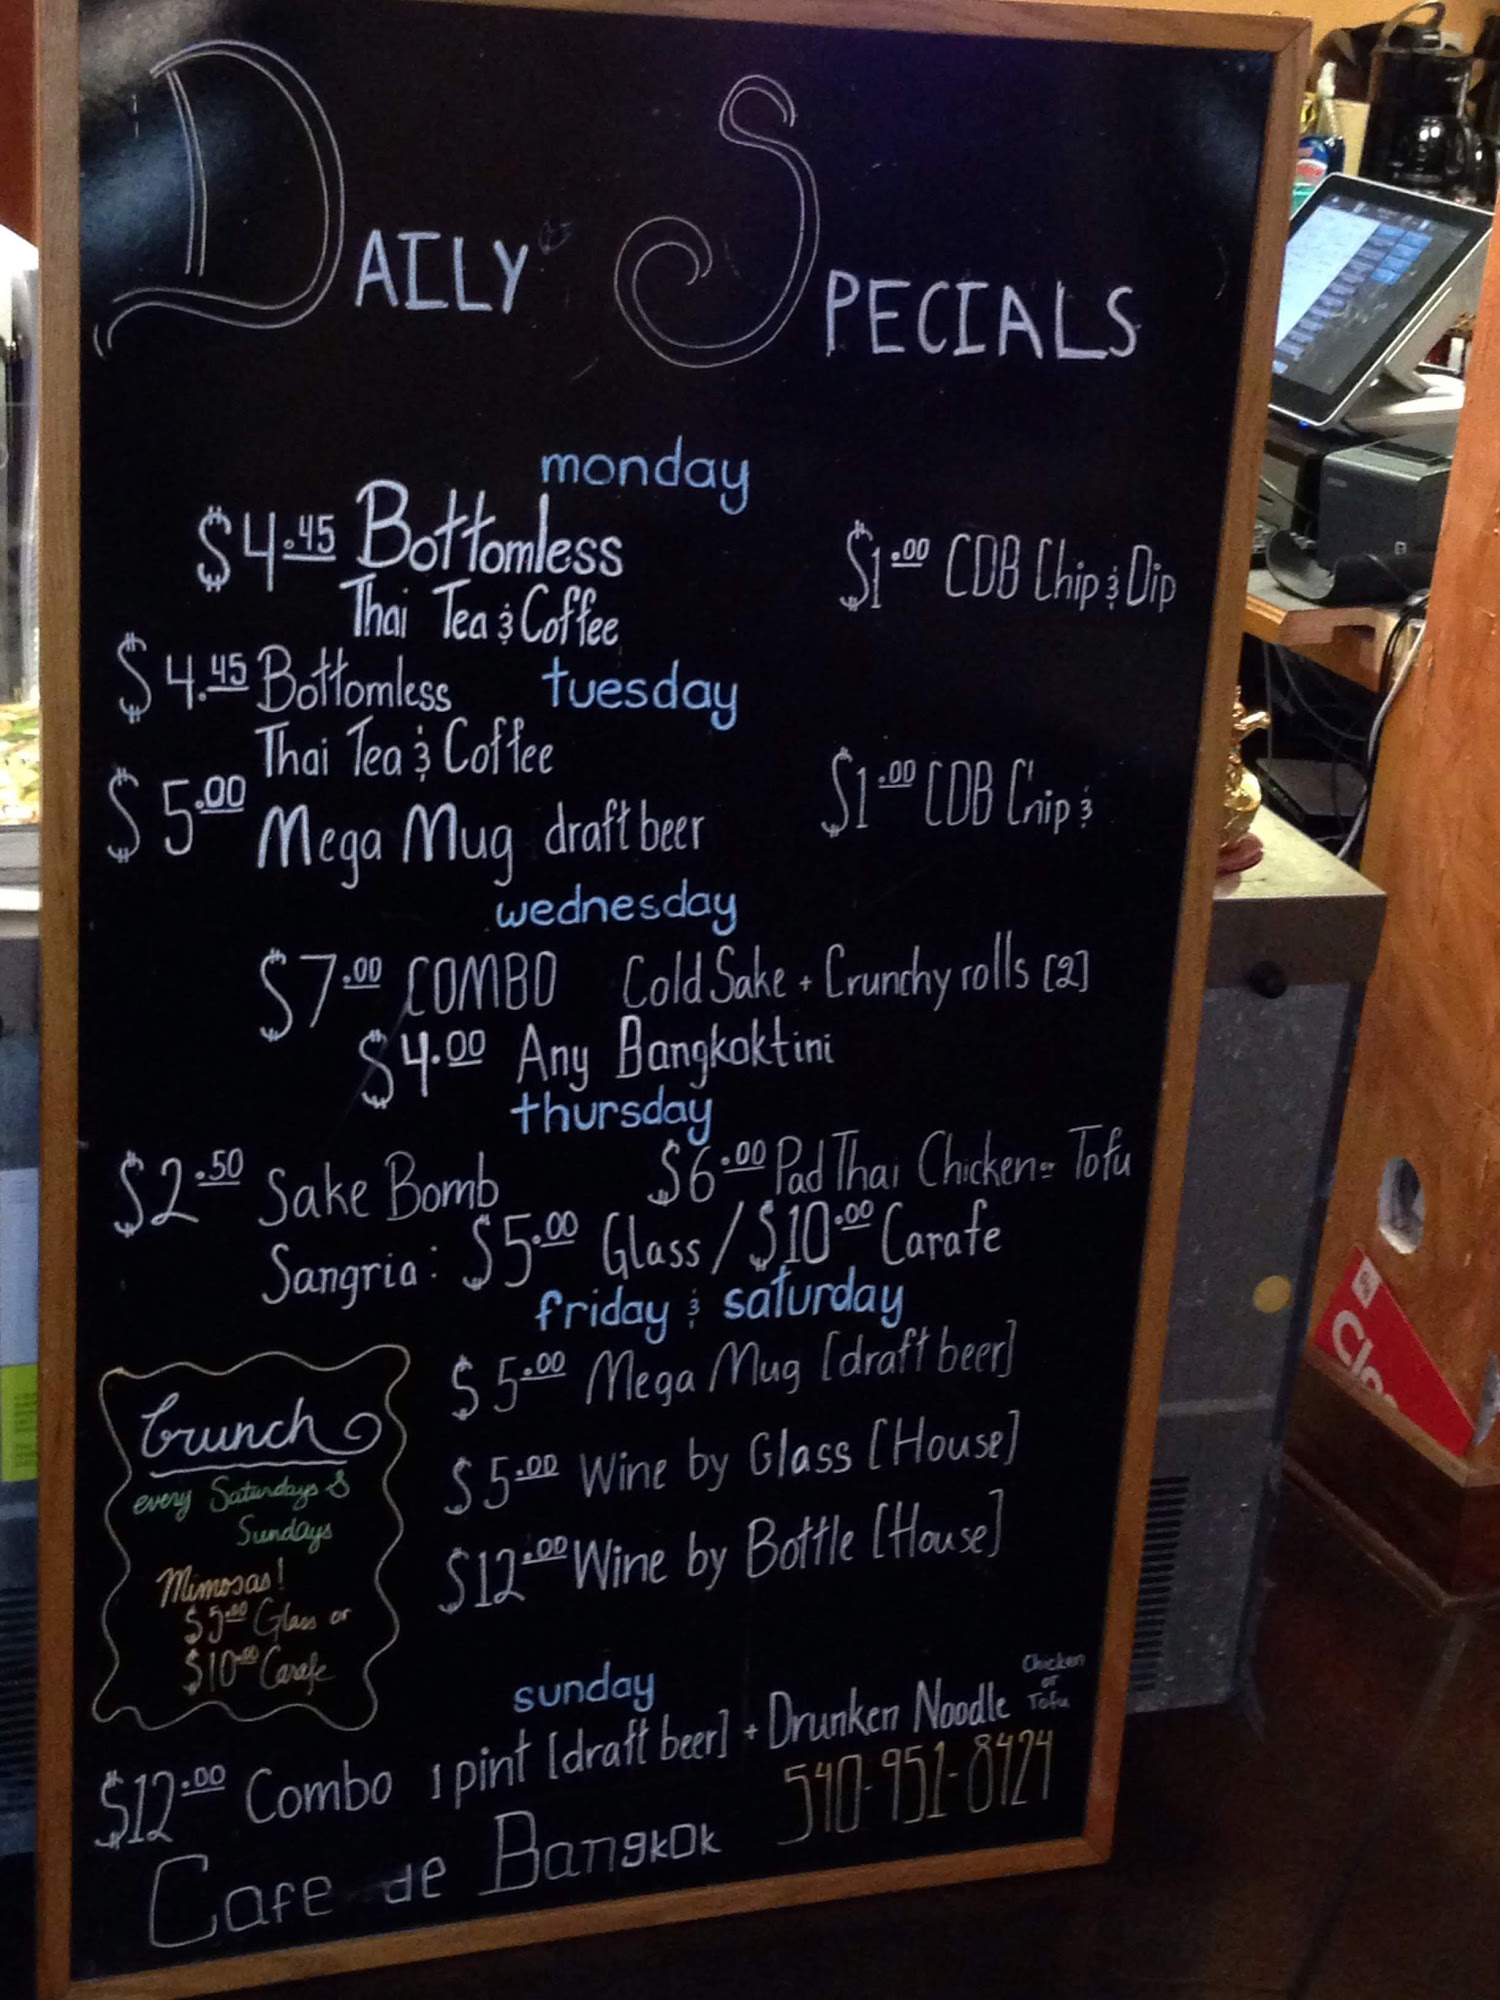 DAILY SPECIALS
monday
$4.45 Bottomless
Thai Tea & Coffee
$1.00 CDB Chip & Dip
tuesday
$4.45 Bottomless
Thai Tea & Coffee
$1.00 CDB Chip &
$5.00 Mega Mug draft beer
wednesday
$7.00 COMBO Cold Sake + Crunchy rolls [2]
$4.00 Any Bangkoktini
thursday
$2.50 Sake Bomb
$6.00 Pad Thai Chicken or Tofu
Sangria: $5.00 Glass / $10.00 Carafe
friday & saturday
$5.00 Mega Mug [draft beer]
$5.00 Wine by Glass [House]
$12.00 Wine by Bottle [House]
brunch
every Saturdays &
Sundays
Mimosas!
$5.00 Glass or
$10.00 Carafe
sunday
$12.00 Combo 1 pint [draft beer] + Drunken Noodle
Chicken
or
Tofu
Cafe de Bangkok
540-951-8424